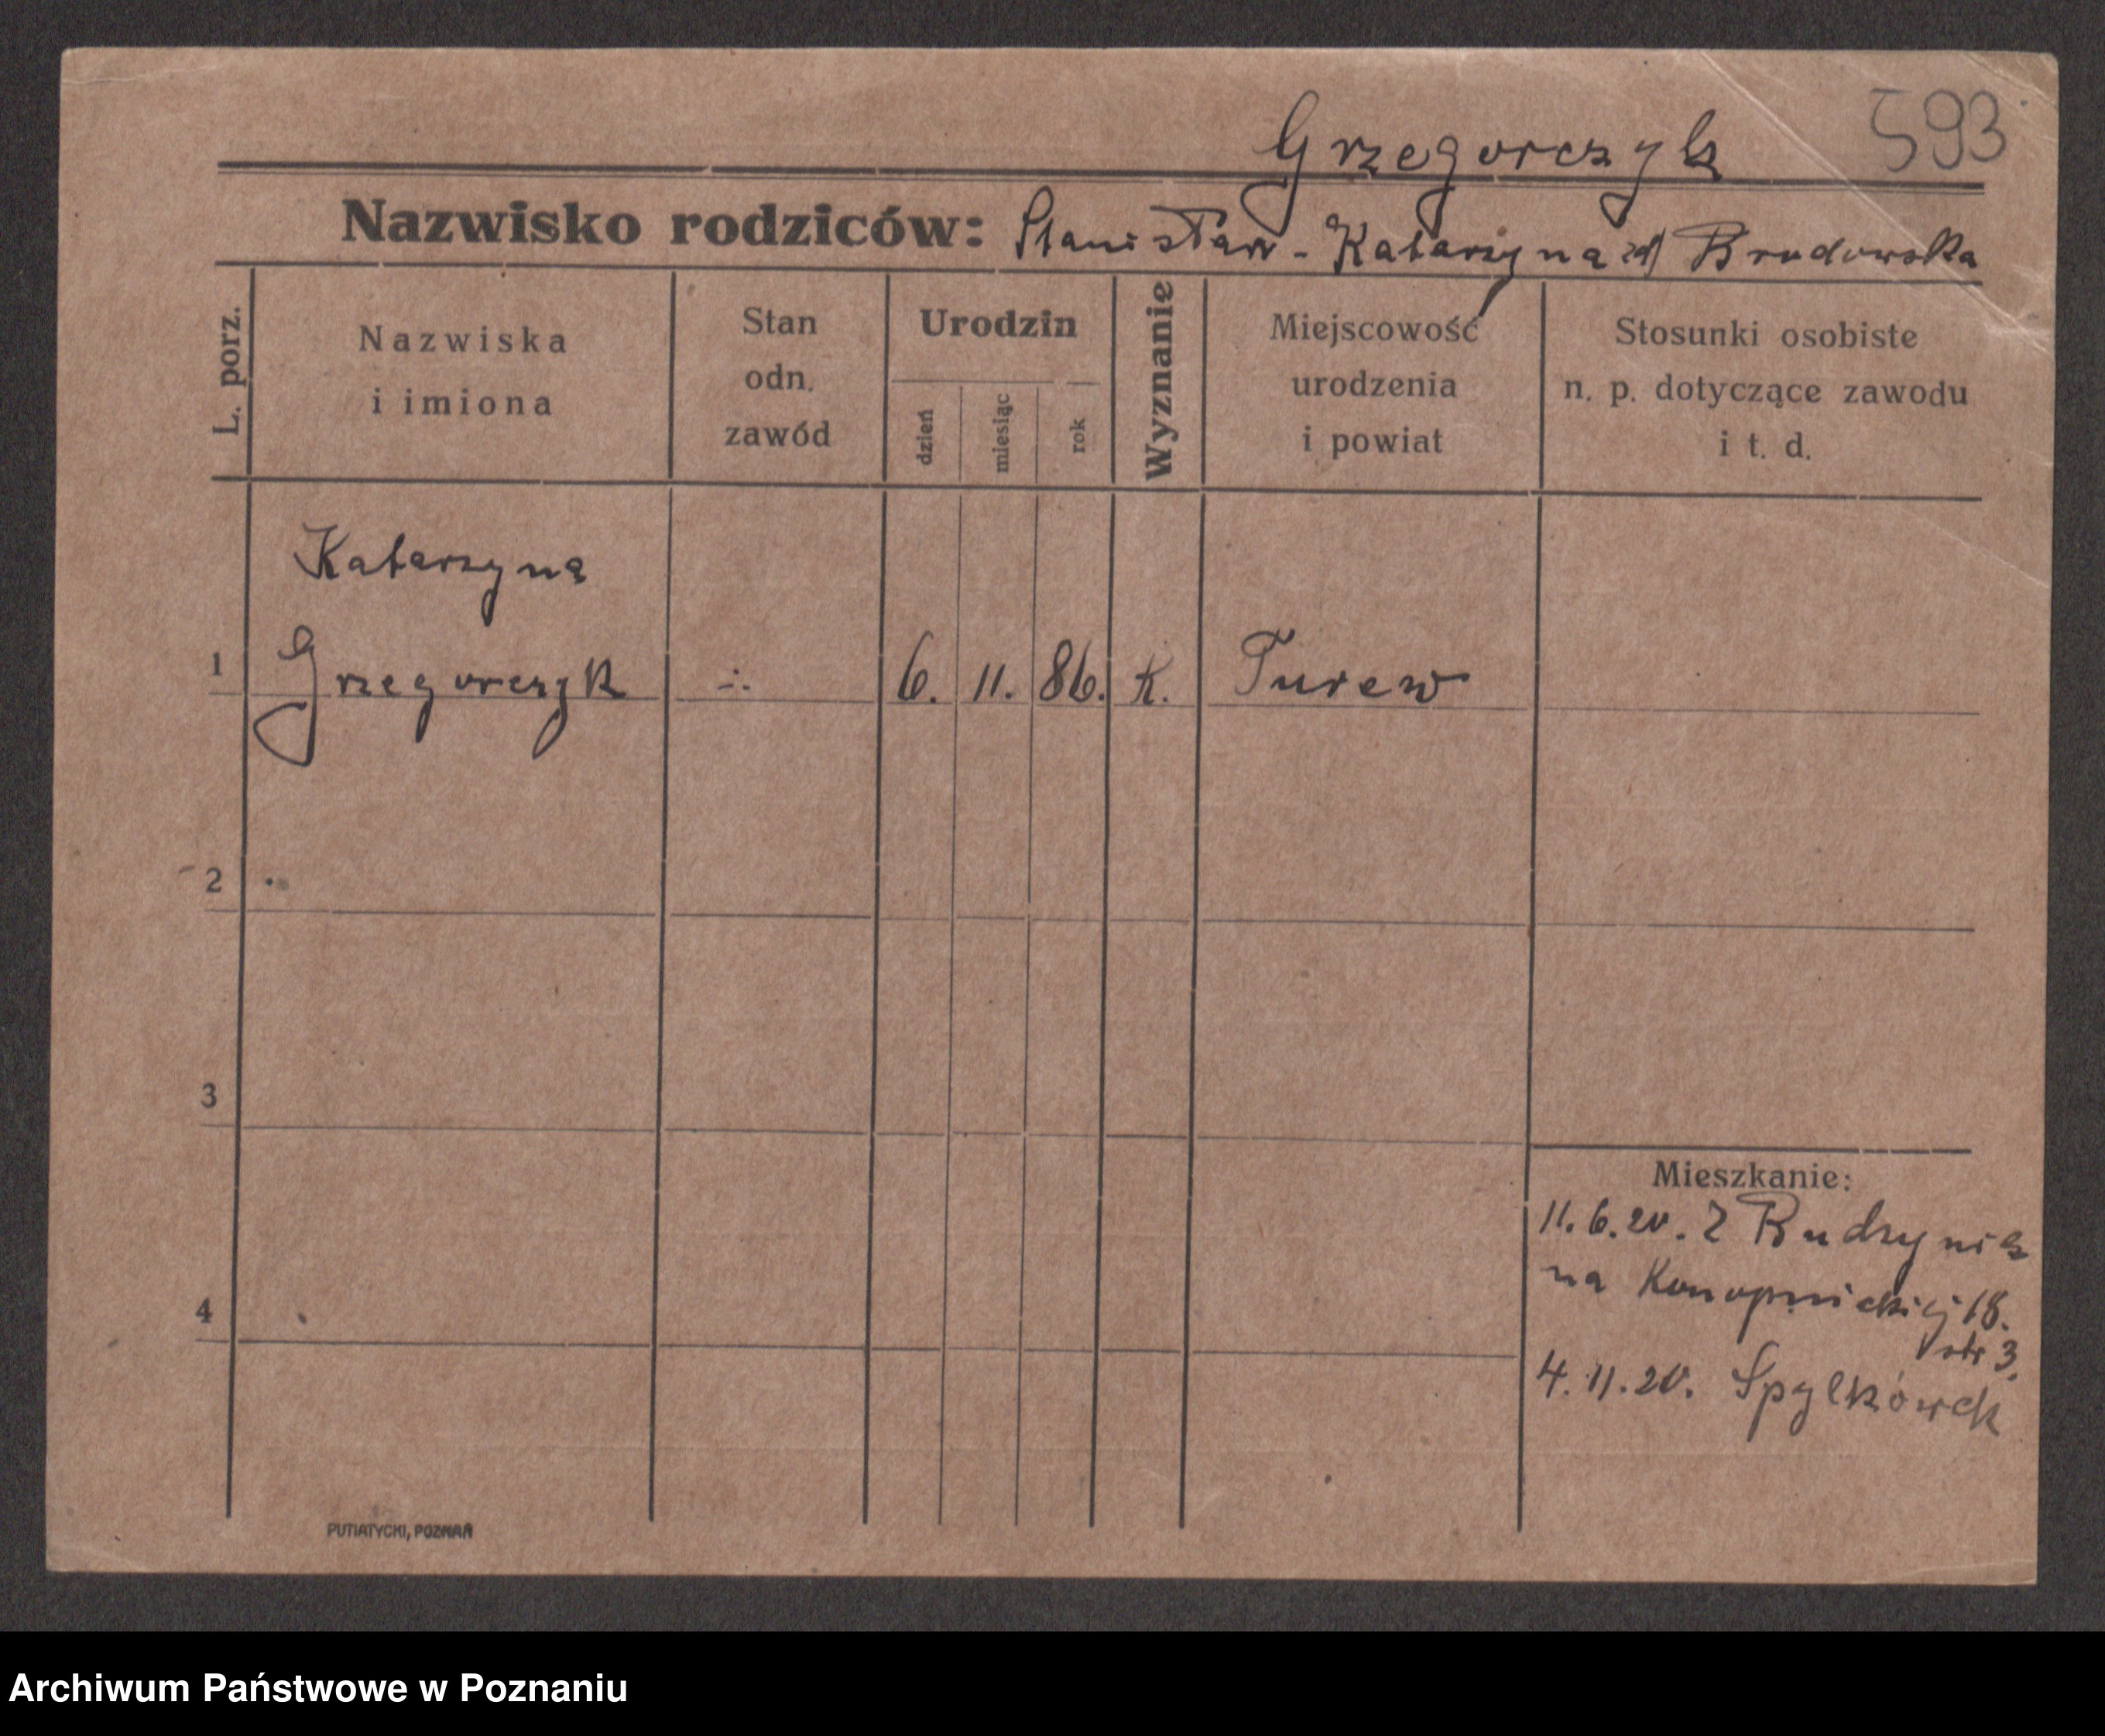 593
Grzegorczyk
Nazwisko rodziców: Stanisław - Katarzyna zd Brodowska
L. porz.
Nazwiska
i imiona
Stan
odn.
zawód
Urodzin
dzień
miesiąc
rok
Wyznanie
Miejscowość
urodzenia
i powiat
Stosunki osobiste
n. p. dotyczące zawodu
i t. d.
Katarzyna
1 Grzegorczyk -:- 6. 11. 86. K. Turew
2
3
4
Mieszkanie:
11.6.20. Z
na Konopnickiej 18.
str 3.
4.11.20. Spylkówek
PUTIATYCKI, POZNAŃ
Archiwum Państwowe w Poznaniu